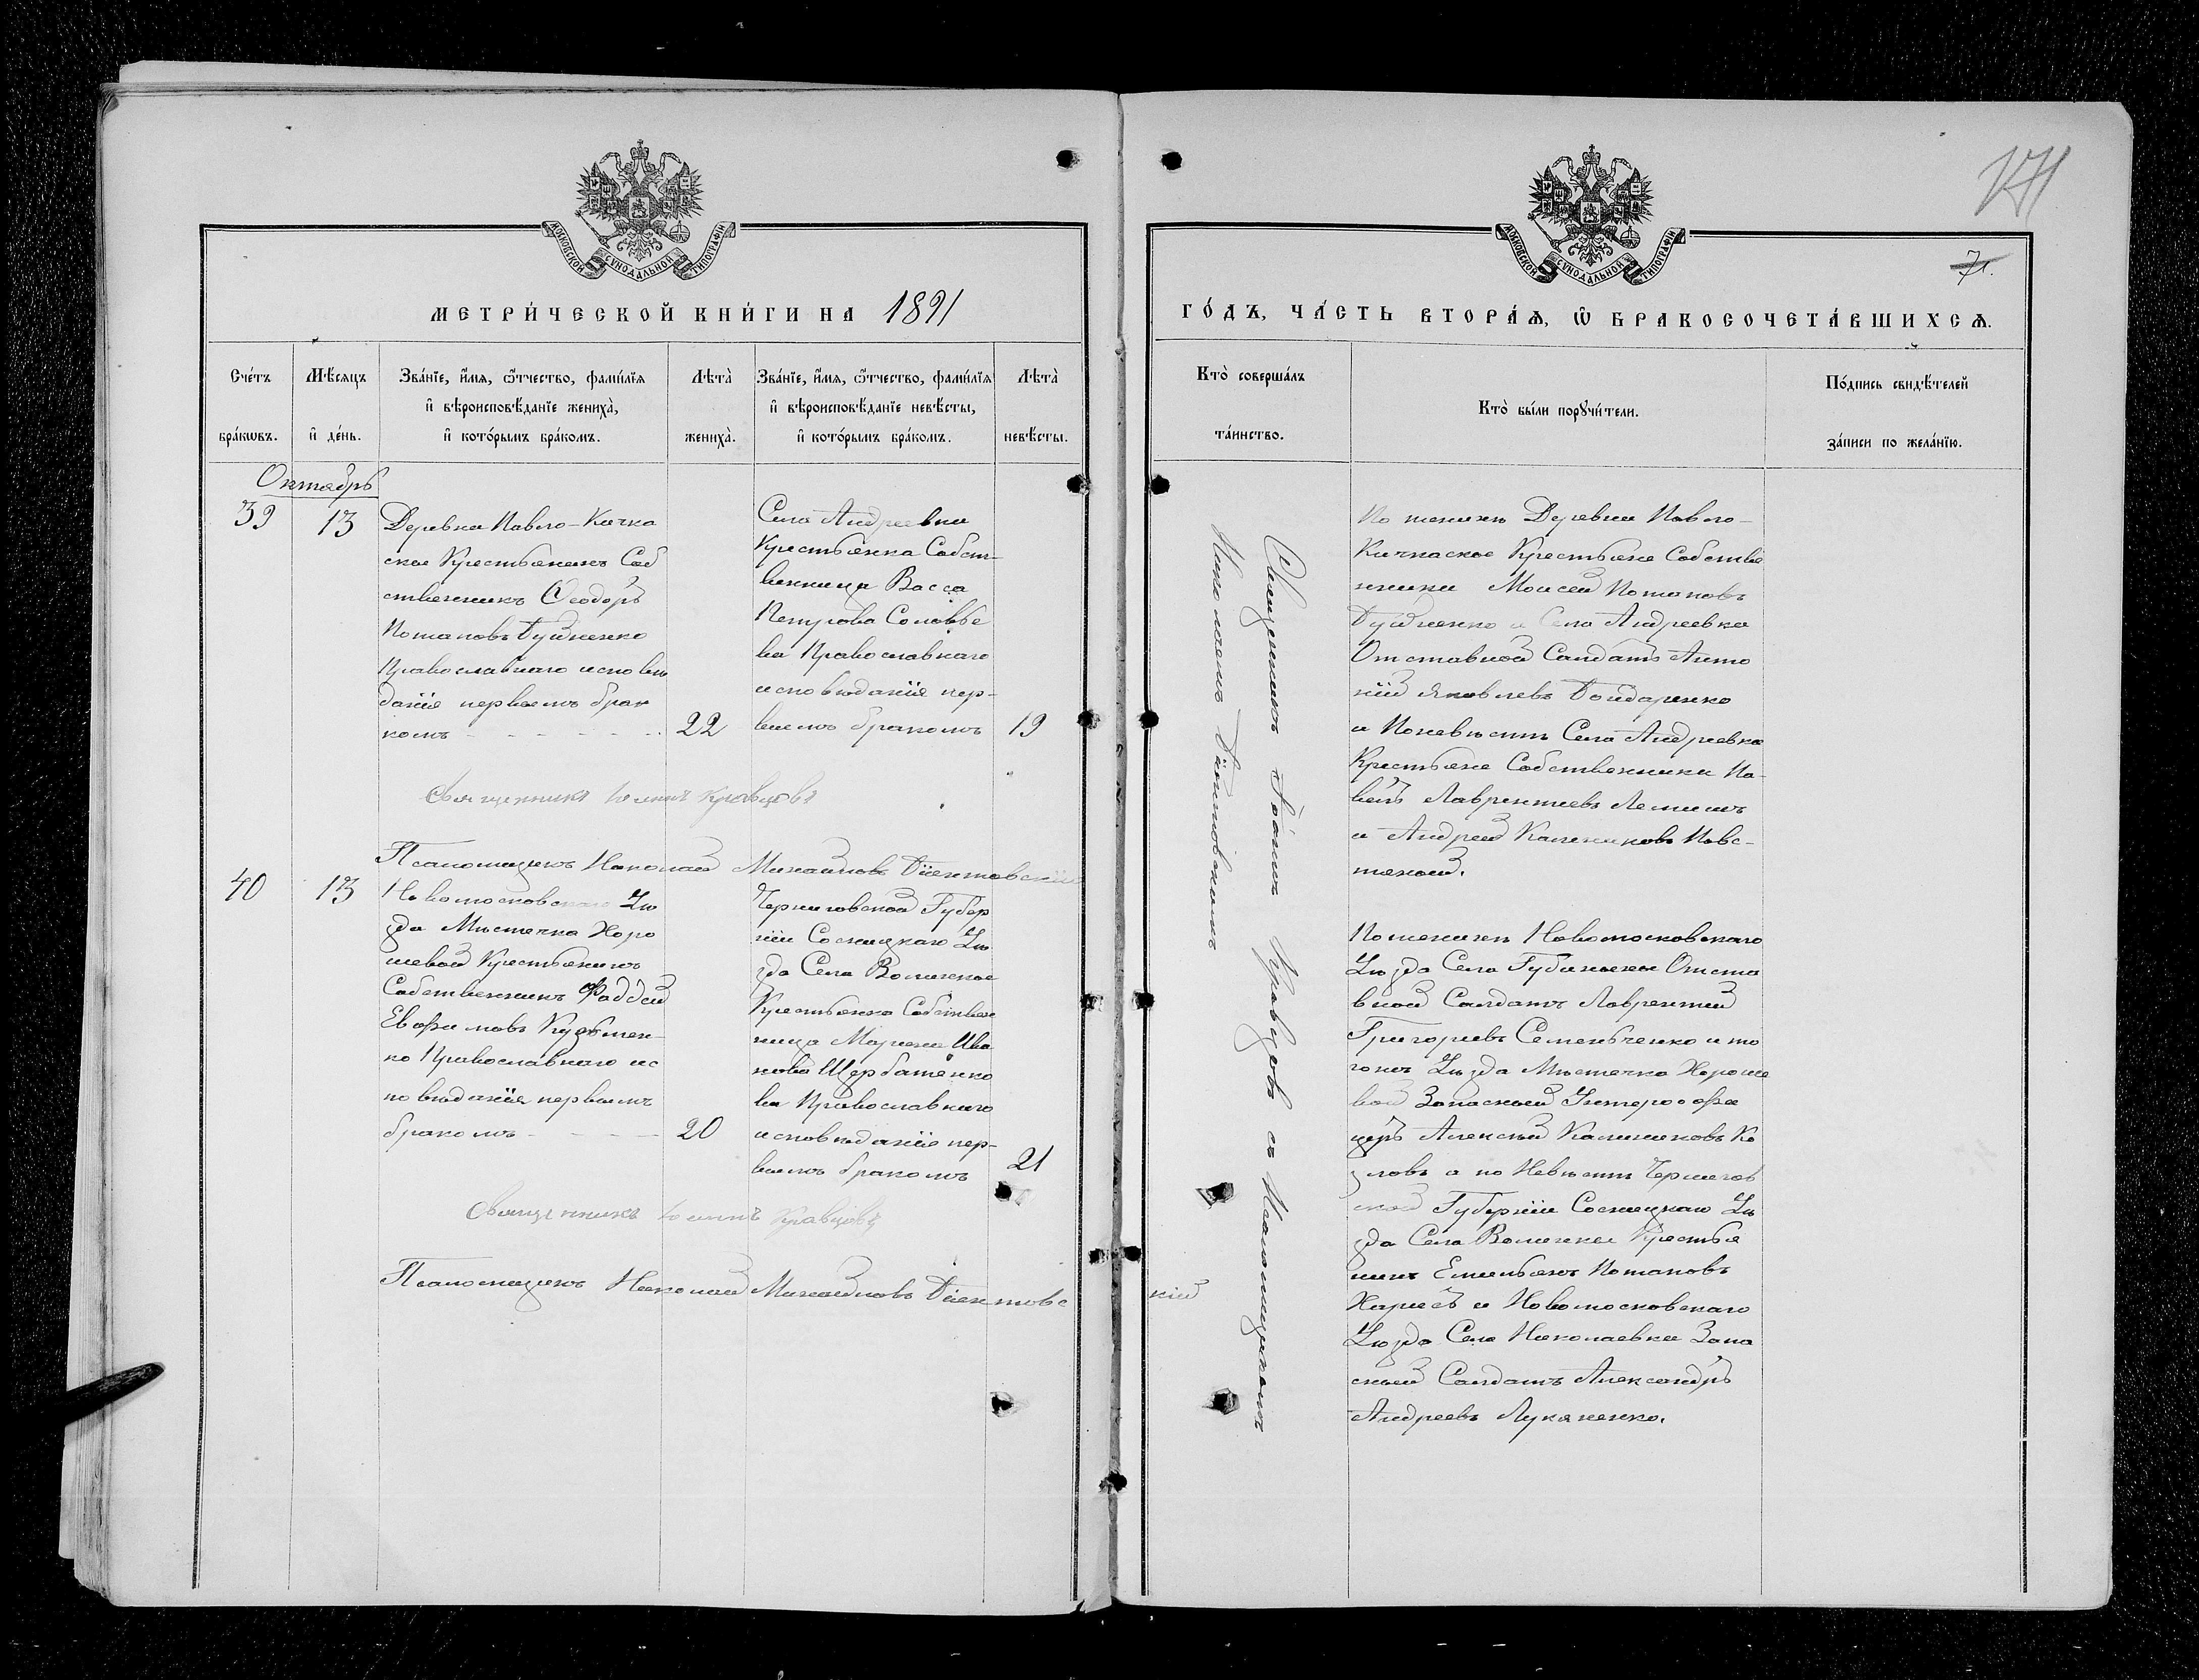 МОСКОВСКОЙ СУНОДАЛЬНОЙ ТИПОГРАФІИ
МЕТРИ́ЧЕСКОЙ КНИ́ГИ НА 1891
Сче́тъ бра́кѡвъ.
Мѣ́сяцъ и҆ де́нь.
Зва́нїе, и҆́мѧ, ѻ҆́тчество, фами́лїѧ
и҆ вѣроисповѣ́данїе жениха̀,
и҆ кото́рымъ бра́комъ.
Лѣта̀ жениха̀.
Зва́нїе, и҆́мѧ, ѻ҆́тчество, фами́лїѧ
и҆ вѣроисповѣ́данїе невѣ́сты,
и҆ кото́рымъ бра́комъ.
Лѣта̀ невѣ́сты.
Октябрь
39
13
Деревни Павло-Кичка
ское Крестьянинъ Соб
ственникъ Ѳеодоръ
Потаповъ Дудненко
Православнаго исповѣ
данія первымъ бра
комъ
22
Села Андреевки
Крестьянка Собст-
венница Васса
Петрова Соловье
ва Православнаго
исповѣданія пер-
вымъ бракомъ
19
Священникъ Іоаннъ Кравцовъ
Псаломщикъ Николай Михайловъ Діентовскій
40
13
Новомосковскаго Уѣ
зда Мѣстечка Хоро
шевой Крестьянинъ
Собственникъ Фаддей
Евфимовъ Кузьмен-
ко Православнаго ис
повѣданія первымъ
бракомъ
20
Черниговской Губер
ніи Сосницкаго Уѣ
зда Села Волинкое
Крестьянка Собствен
ница Марина Ива
нова Щербатенко
ва Православнаго
исповѣданія пер-
вымъ бракомъ
21
Священникъ Іоаннъ Кравцовъ
Псаломщикъ Николай Михайловъ Діентовс
кій
171
71.
МОСКОВСКОЙ СУНОДАЛЬНОЙ ТИПОГРАФІИ
ГО́ДЪ, ЧА́СТЬ ВТОРА́Ѧ, Ѽ БРАКОСОЧЕТА́ВШИХСѦ.
Кто̀ соверша́лъ та́инство.
Кто̀ бы́ли порꙋчи́тели.
По́дпись свидѣ́телей за́писи по жела́нїю.
Священникъ Іоаннъ Кравцовъ съ Псаломщикомъ
Николаемъ Діентовскимъ
По женихѣ Деревни Павло-
Кичкаское Крестьяне Собствѣ
нники Моисей Потаповъ
Дудненко и Села Андреевки
Отставной Салдатъ Анто
ній Яковлевъ Бондаренко
и По невѣстѣ Села Андреевки
Крестьяне Собственники Па-
велъ Лаврентіевъ Лемишъ
и Андрей Калениковъ Повс-
тяной.
По женихѣ Новомосковскаго
Уѣзда Села Губинихи Отста
вной Салдатъ Лаврентій
Григорьевъ Семенченко и то
гожъ Уѣзда Мѣстечка Хороше
вой Запасный Унтерофи
церъ Алексѣй Калениковъ Ко
зловъ а по Невѣстѣ Чернигов
ской Губерніи Сосницкаго Уѣ
зда Села Волинки Крестья
нинъ Емельянъ Потаповъ
и Новомосковскаго
Уѣзда Села Николаевки Запа
сный Салдатъ Александръ
Андреевъ Лукяненко.